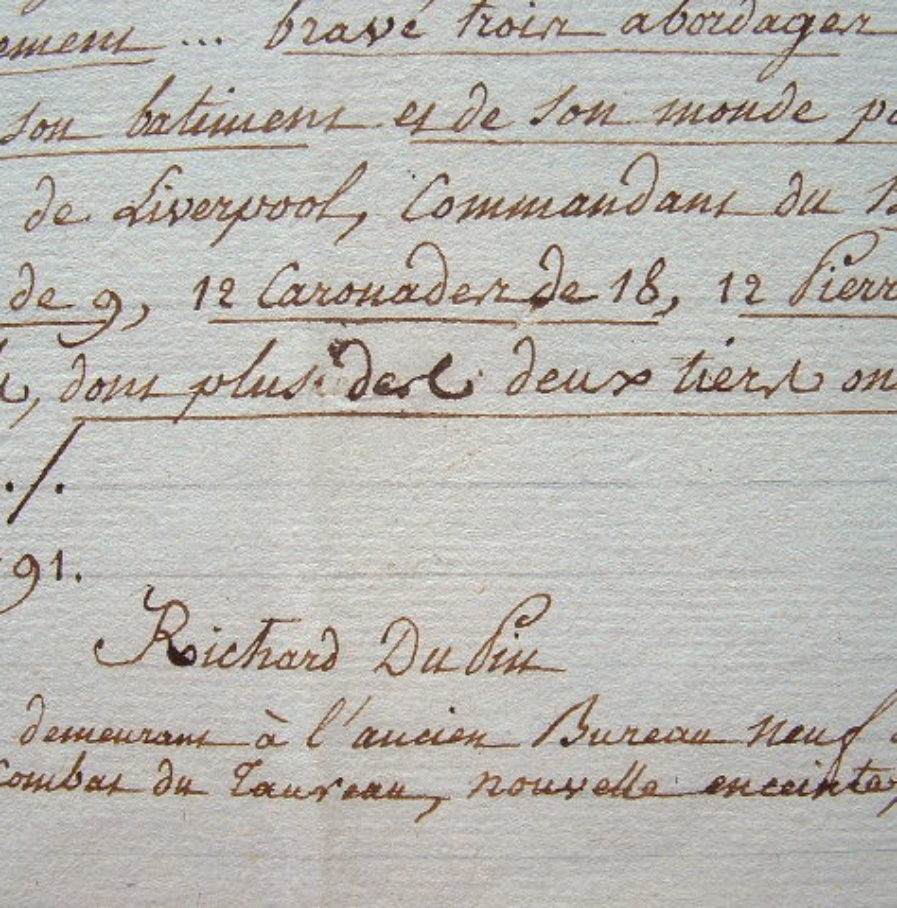 ement ... bravé trois abordages
son batiment et de son monde pa
de Liverpool, Commandant du B
de 9, 12 Caronades de 18, 12 Pierr
, dont plus des deux tiers on
./.
91.
Richard Du Pin
demeurant à l'ancien Bureau neuf
Combat du Taureau, nouvelle enceinte,